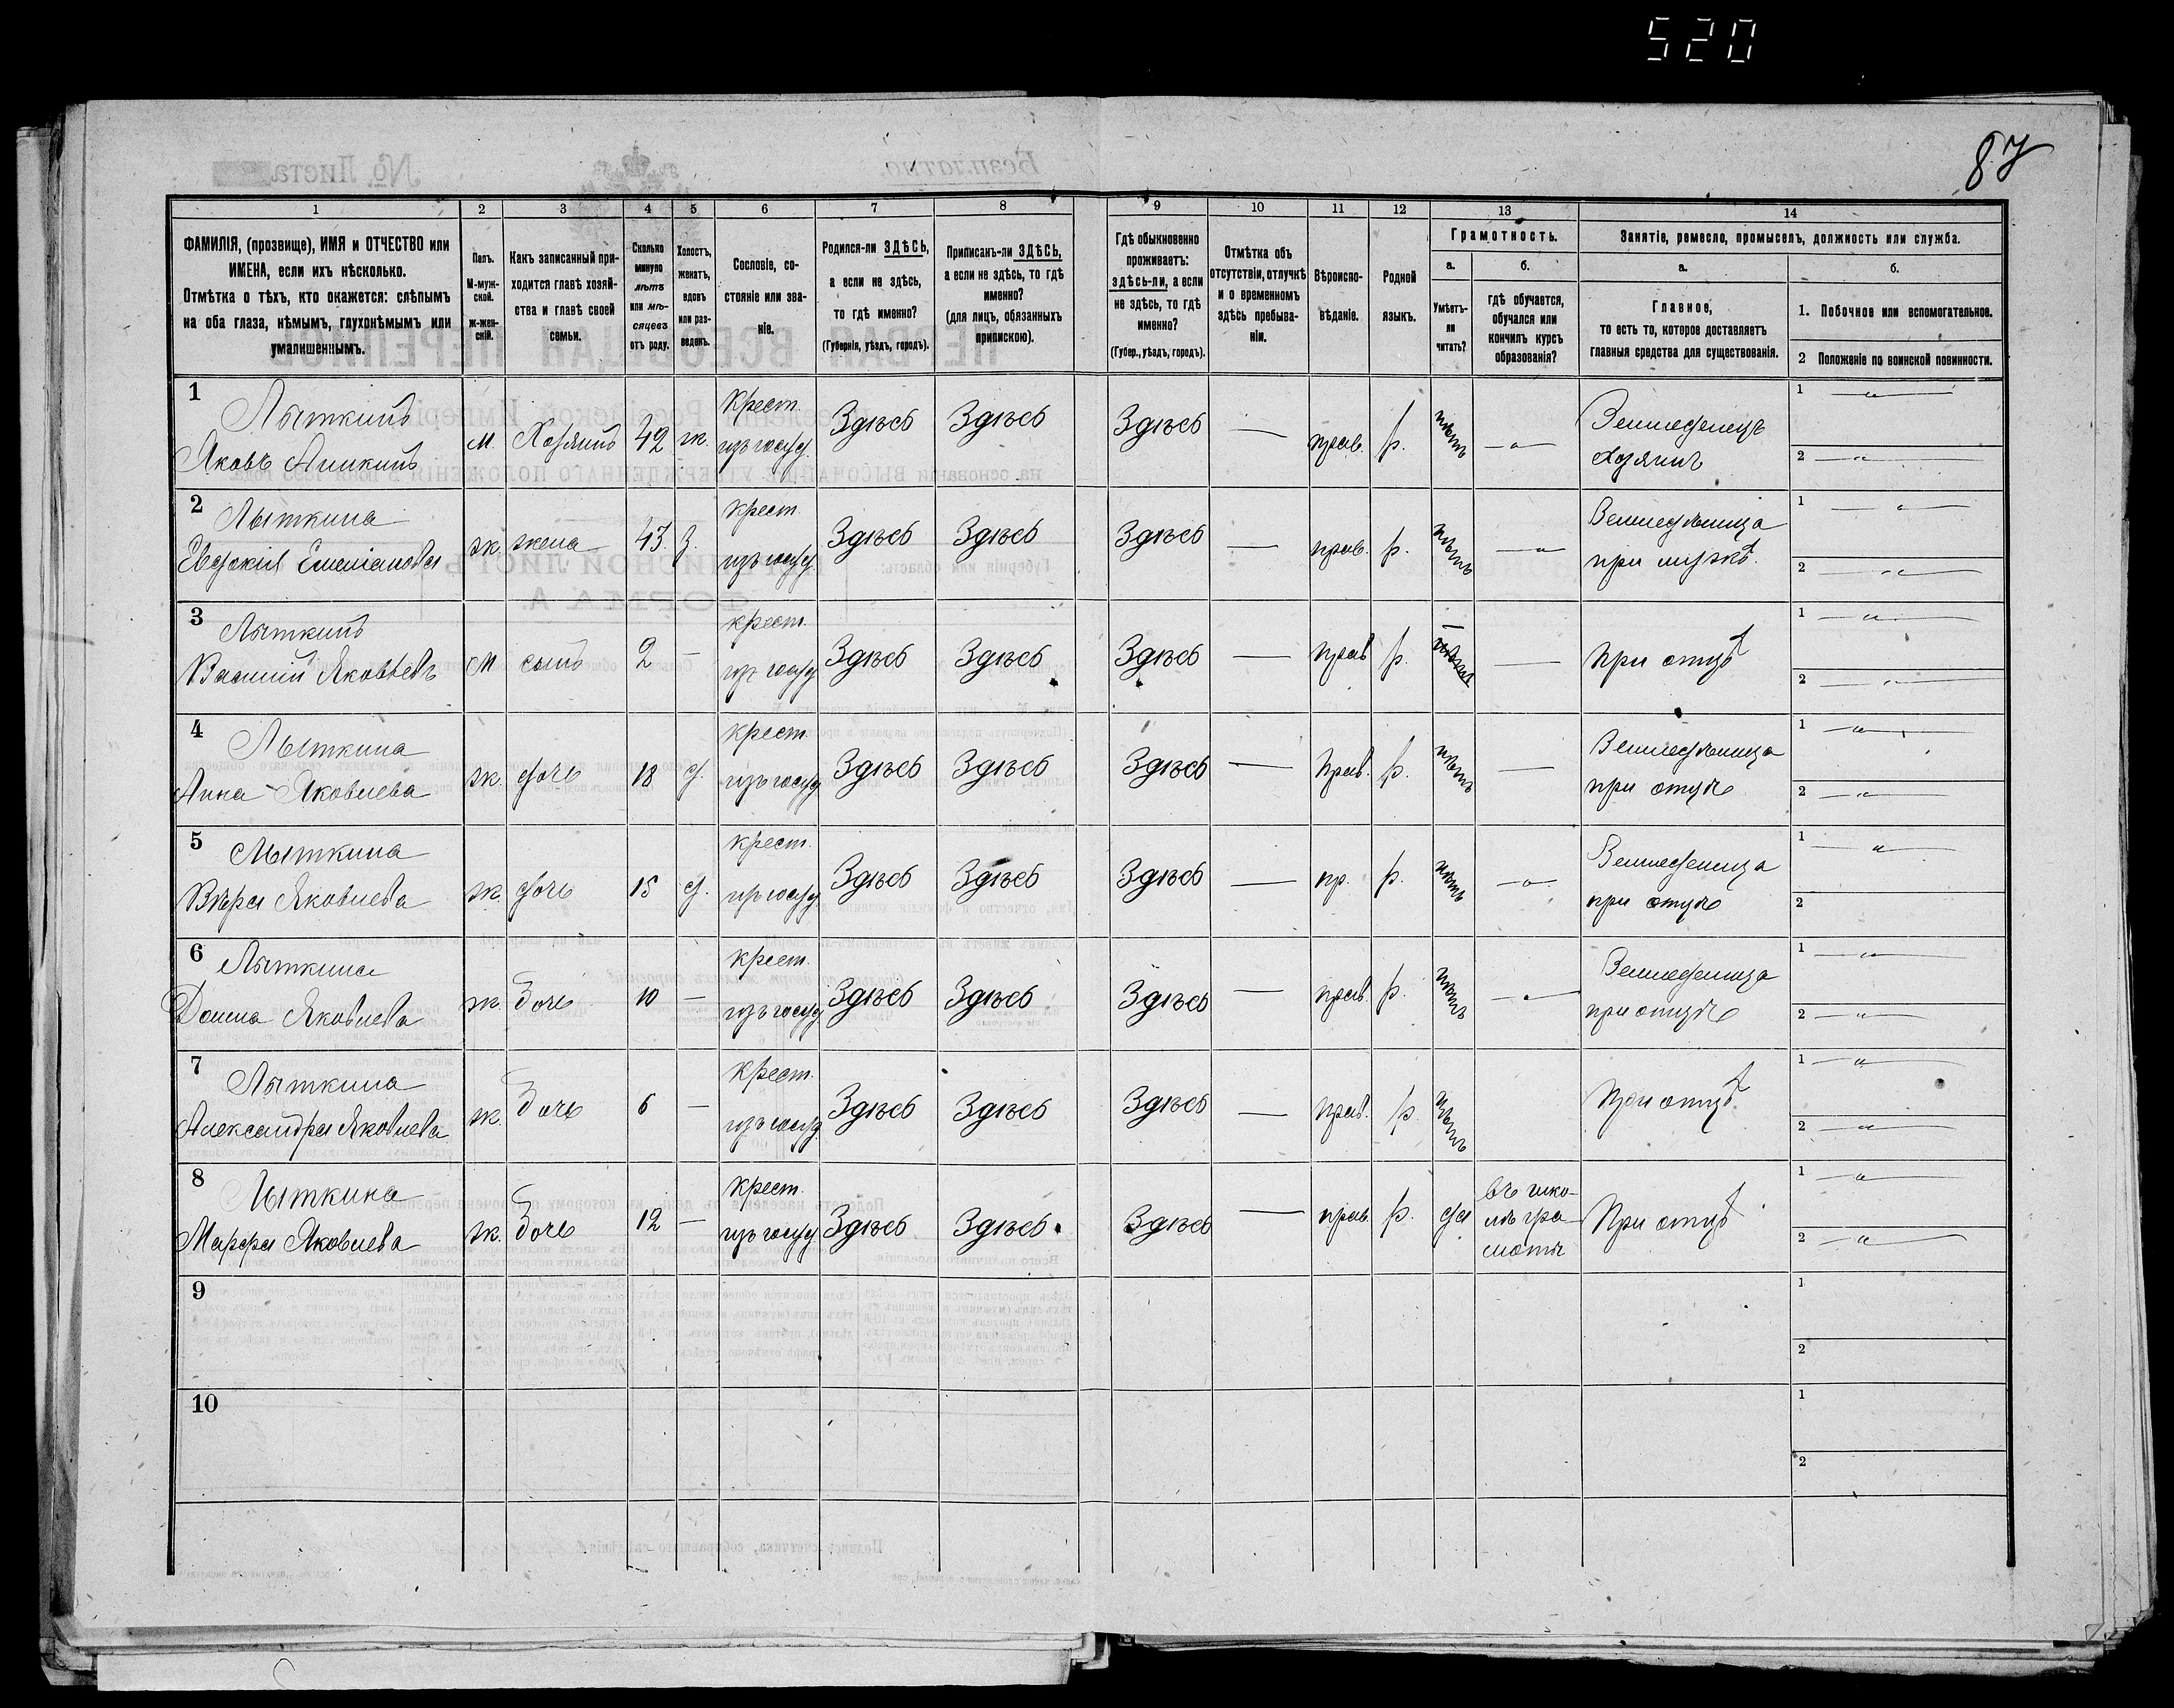 520
87
1 2 3 4 5 6 7 8 9 10 11 12 13 14
ФАМИЛІЯ, (прозвище), ИМЯ и ОТЧЕСТВО или ИМЕНА, если ихъ нѣсколько.
Отмѣтка о тѣхъ, кто окажется: слѣпымъ на оба глаза, нѣмымъ, глухонѣмымъ или умалишеннымъ.
Полъ. М-мужской. ж-женскій.
Какъ записанный приходится главѣ хозяйства и главѣ своей семьи.
Сколько минуло лѣтъ или мѣсяцевъ отъ роду.
Холостъ, женатъ, вдовъ или разведенъ.
Сословіе, состояніе или званіе.
Родился-ли ЗДѢСЬ, а если не здѣсь, то гдѣ именно?
(Губернія, уѣздъ, городъ).
Приписанъ-ли ЗДѢСЬ, а если не здѣсь, то гдѣ именно?
(для лицъ, обязанныхъ припискою).
Гдѣ обыкновенно проживаетъ: здѣсь-ли, а если не здѣсь, то гдѣ именно?
(Губер., уѣздъ, городъ).
Отмѣтка объ отсутствіи, отлучкѣ и о временномъ здѣсь пребываніи.
Вѣроисповѣданіе.
Родной языкъ.
Грамотность.
а. Умѣетъ-ли читать?
б. гдѣ обучается, обучался или кончилъ курсъ образованія?
Занятіе, ремесло, промыселъ, должность или служба.
а. Главное, то есть то, которое доставляетъ главныя средства для существованія.
б.
1. Побочное или вспомогательное.
2 Положеніе по воинской повинности.
1 Лыткинъ
Яковъ Аникинъ м. Хозяинъ 42 ж. Крест. изъ госуд. Здѣсь Здѣсь Здѣсь — прав. р. нѣтъ —„— Земледѣлецъ хозяинъ 1 —„— 2 —„—
2 Лыткина
Евдокія Емеліанова ж. жена 43. з. крест. изъ госуд. Здѣсь Здѣсь Здѣсь — прав. р. нѣтъ —„— Земледѣлица при мужѣ. 1 —„— 2 —„—
3 Лыткинъ
Василій Яковлевъ м сынъ 2 — крест. изъ госуд Здѣсь Здѣсь Здѣсь — прав р. — — При отцѣ 1 —„— 2 —„—
4 Лыткина
Анна Яковлева ж. дочь 18 д. крест. изъ госуд Здѣсь Здѣсь Здѣсь — Прав. р. нѣтъ — Земледѣлица при отцѣ 1 —„— 2 —„—
5 Лыткина
Вѣра Яковлева ж. дочь 15 д. крест. изъ госуд Здѣсь Здѣсь Здѣсь — пр. р. нѣтъ —„— Земледѣлица при отцѣ 1 —„— 2
6 Лыткина
Домна Яковлева ж. дочь 10 — крест. изъ госуд Здѣсь Здѣсь Здѣсь — прав. р. нѣтъ —„— Земледѣлица при отцѣ 1 —„— 2 —„—
7 Лыткина
Александра Яковлева ж. дочь 6 — Крест. изъ госуд. Здѣсь Здѣсь Здѣсь — прав. р. нѣтъ При отцѣ 1 —„— 2 —„—
8 Лыткина
Марфа Яковлева ж. дочь 12 — Крест. изъ госуд. Здѣсь Здѣсь Здѣсь — прав р. да въ школѣ грамоты При отцѣ 1 —„— 2 —„—
9 1 2
10 1 2